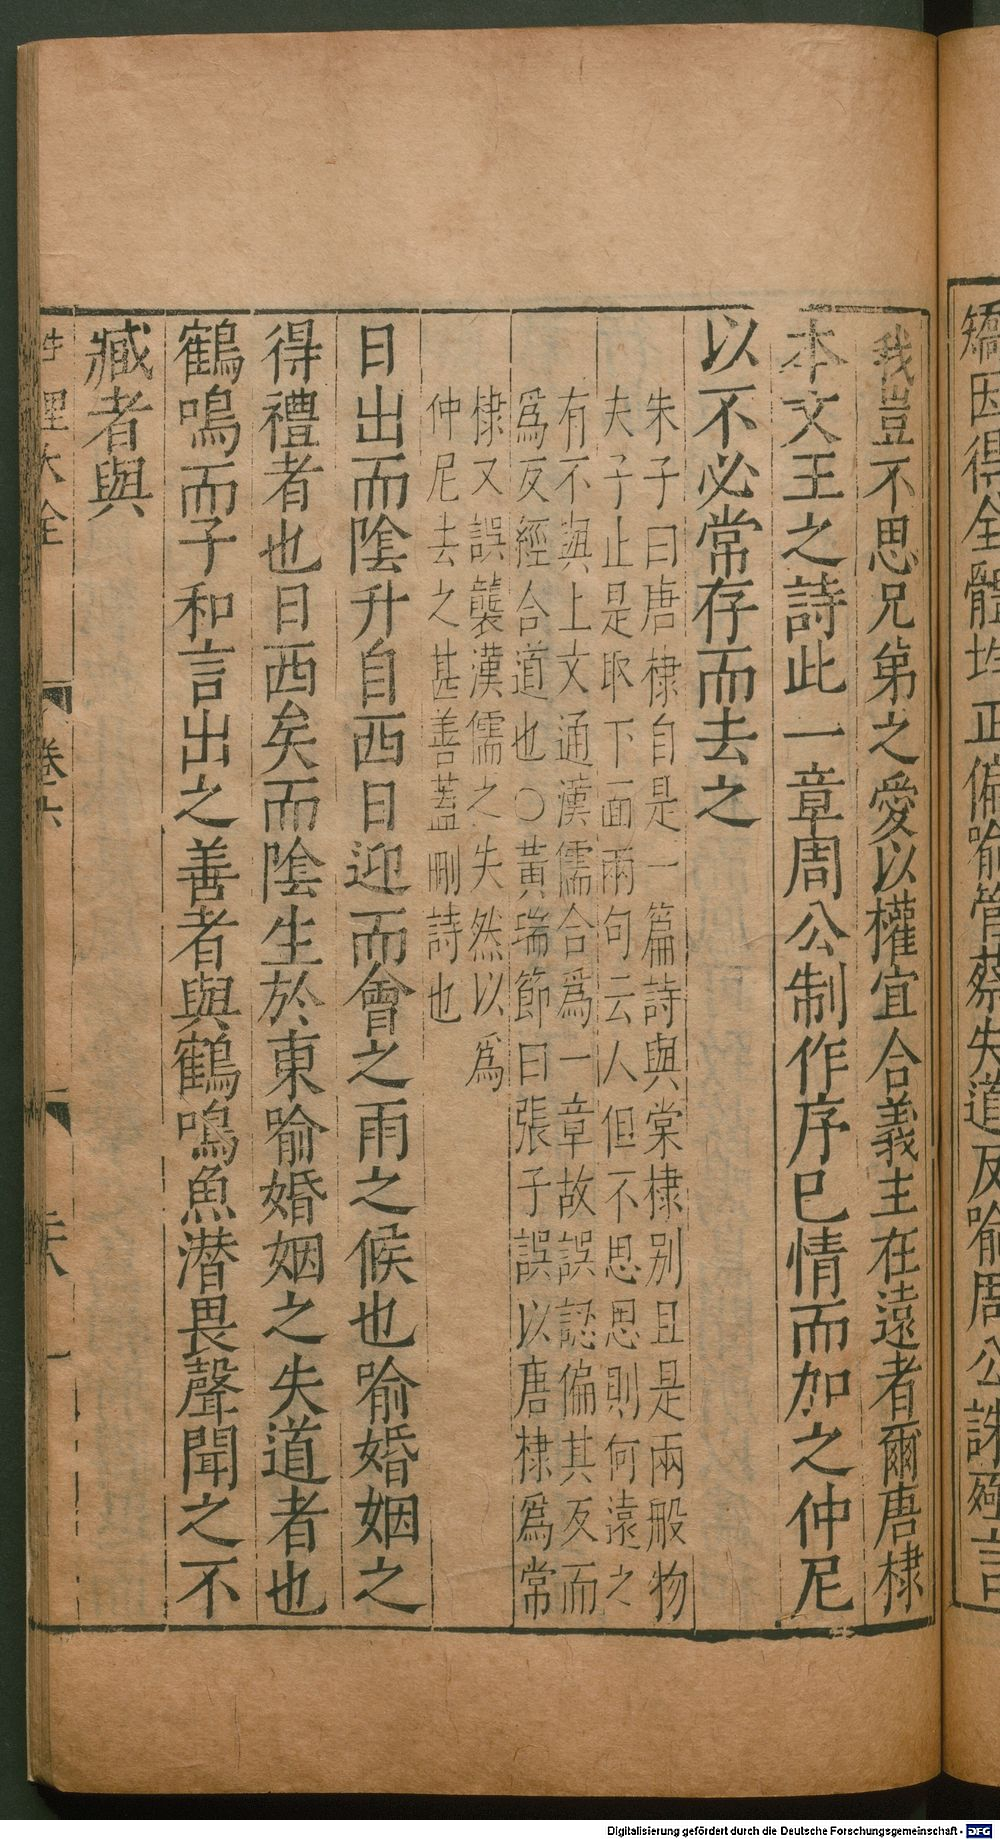 矯因得全體均正偏喻管蔡失道反喻周公誅殛言
我豈不思兄弟之愛以權宜合義主在遠者爾唐棣
本文王之詩此一章周公制作序已情而加之仲尼
以不必常存而去之
朱子曰唐棣自是一篇詩與棠棣別且是兩般物
夫子止是取下面兩句云人但不思思則何遠之
有不與上文通漢儒合爲一章故誤認偏其反而
爲反經合道也○黃瑞節曰張子誤以唐棣爲常
棣又誤襲漢儒之失然以爲
仲尼去之甚善蓋刪詩也
日出而陰升自西日迎而會之雨之候也喻婚姻之
得禮者也日西矣而陰生於東喻婚姻之失道者也
鶴鳴而子和言出之善者與鶴鳴魚潛畏聲聞之不
臧者與
理大全
卷六
Digitalisierung gefördert durch die Deutsche Forschungsgemeinschaft - DFG